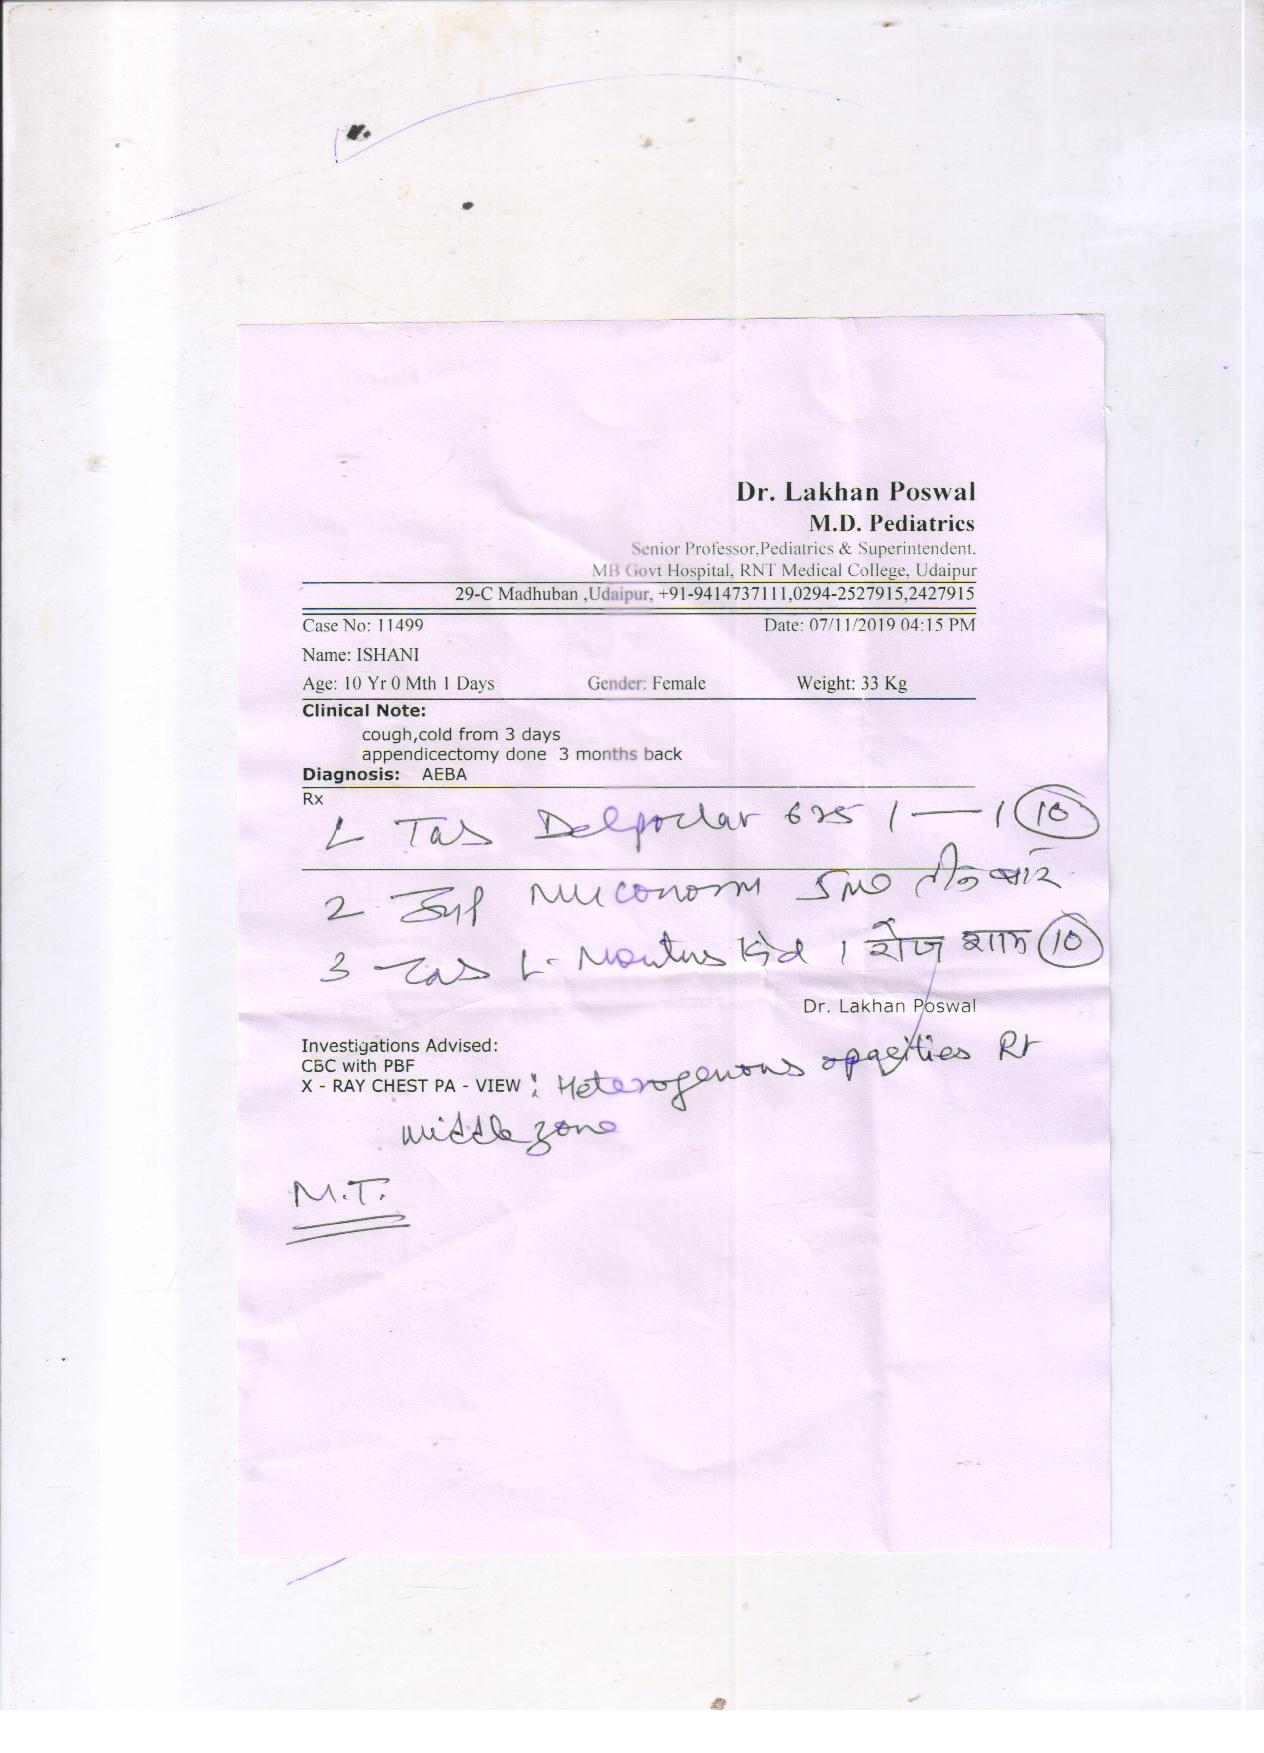 Dr. Lakhan Poswal
M.D. Pediatrics
Senior Professor,Pediatrics & Superintendent.
MB Govt Hospital, RNT Medical College, Udaipur
29-C Madhuban ,Udaipur, +91-9414737111,0294-2527915,2427915
Case No: 11499 Date: 07/11/2019 04:15 PM
Name: ISHANI
Age: 10 Yr 0 Mth 1 Days Gender: Female Weight: 33 Kg
Clinical Note:
cough,cold from 3 days
appendicectomy done 3 months back
Diagnosis: AEBA
Rx
1 Tab Delpoclav 625 1 — 1 10
2 Syp Muconorm 5ml तीन बार
3 Tab L-Montus Kid 1 रोज शाम 10
Dr. Lakhan Poswal
Investigations Advised:
CBC with PBF
X - RAY CHEST PA - VIEW : Heterogenous opacities Rt
middle zone
M.T.